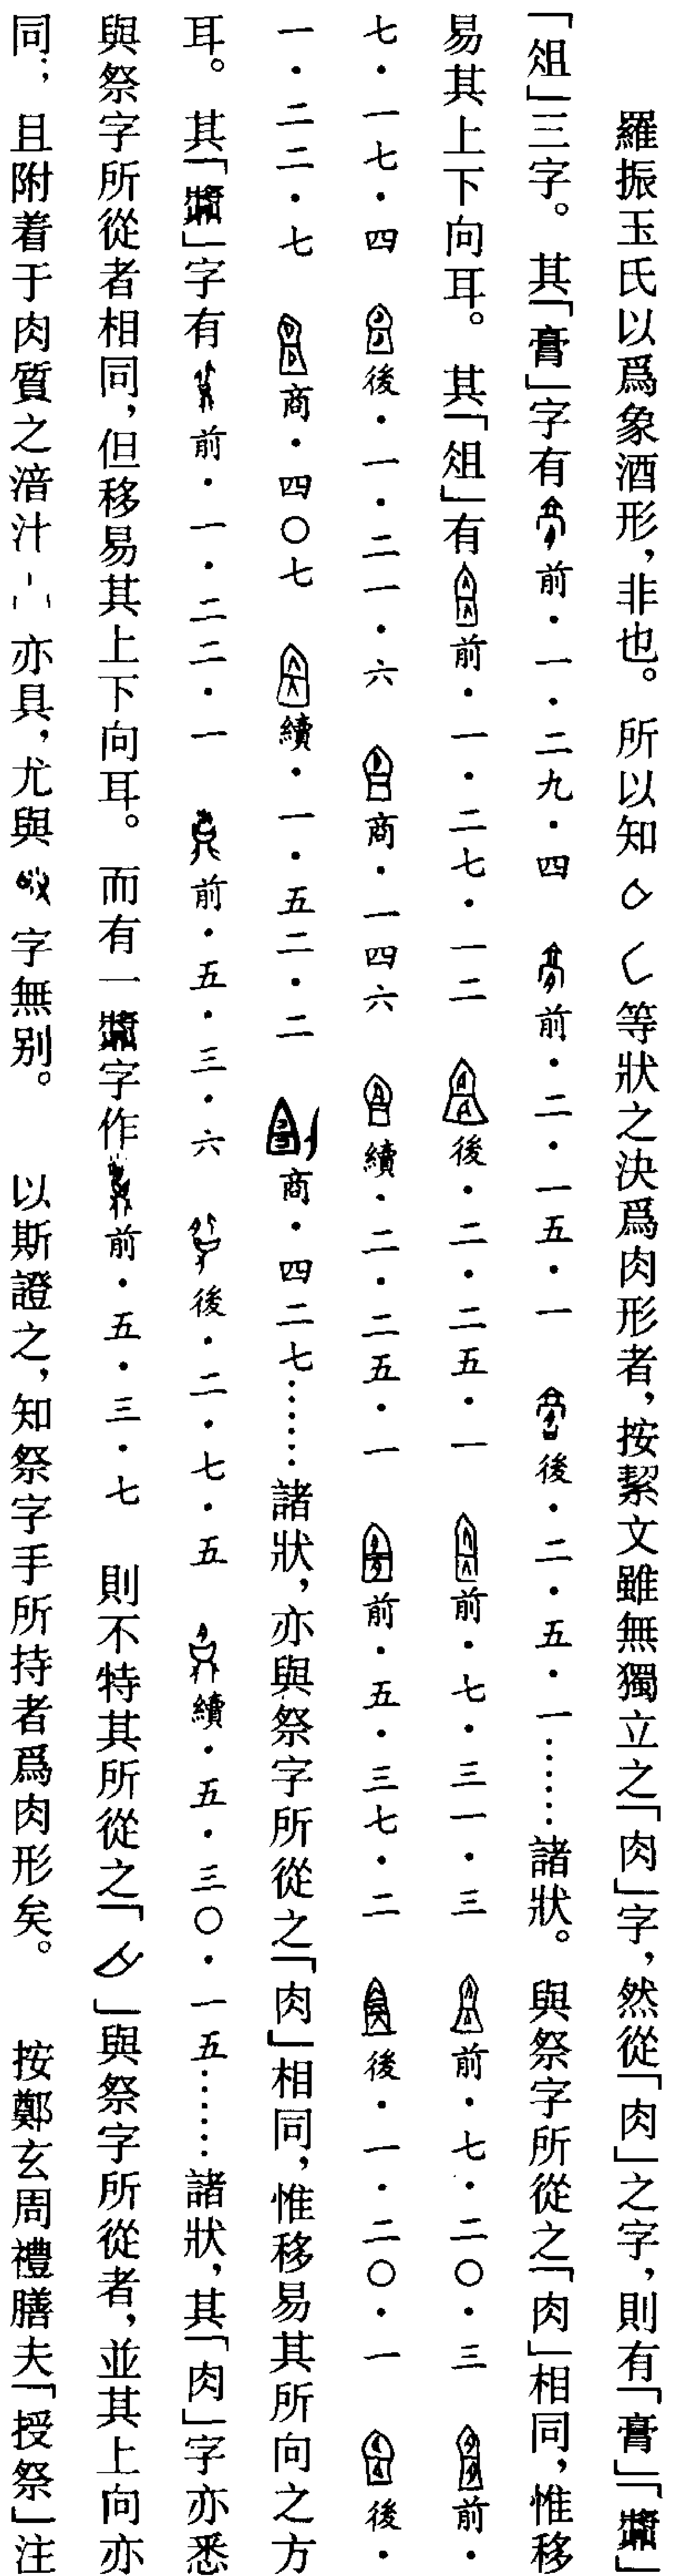 羅振玉氏以爲象酒形，非也。所以知等狀之決爲肉形者，按絜文雖無獨立之「肉」字，然從「肉」之字，則有「膏」「」
「俎」三字。其「膏」字有前·一·二九·四 前·二·一五·一 後·二·五·一……諸狀。與祭字所從之「肉」相同，惟移
易其上下向耳。其「俎」有前·一·二七·一二 後·二·二五·一 前·七·三一·三 前·七·二〇·三 前·
七·一七·四 後·一·二一·六 商·一四六 續·二·二五·一 前·五·三七·二 後·一·二〇·一 後·
一·二二·七 商·四〇七 續·一·五二·二 商·四二七……諸狀，亦與祭字所從之「肉」相同，惟移易其所向之方
耳。其「」字有前·一·二二·一 前·五·三·六 後·二·七·五 續·五·三〇·一五……諸狀，其「肉」字亦悉
與祭字所從者相同，但移易其上下向耳。而有一字作前·五·三·七 則不特其所從之「」與祭字所從者，並其上向亦
同；且附着于肉質之湆汁亦具，尤與字無別。以斯證之，知祭字手所持者爲肉形矣。按鄭玄周禮膳夫「授祭」注